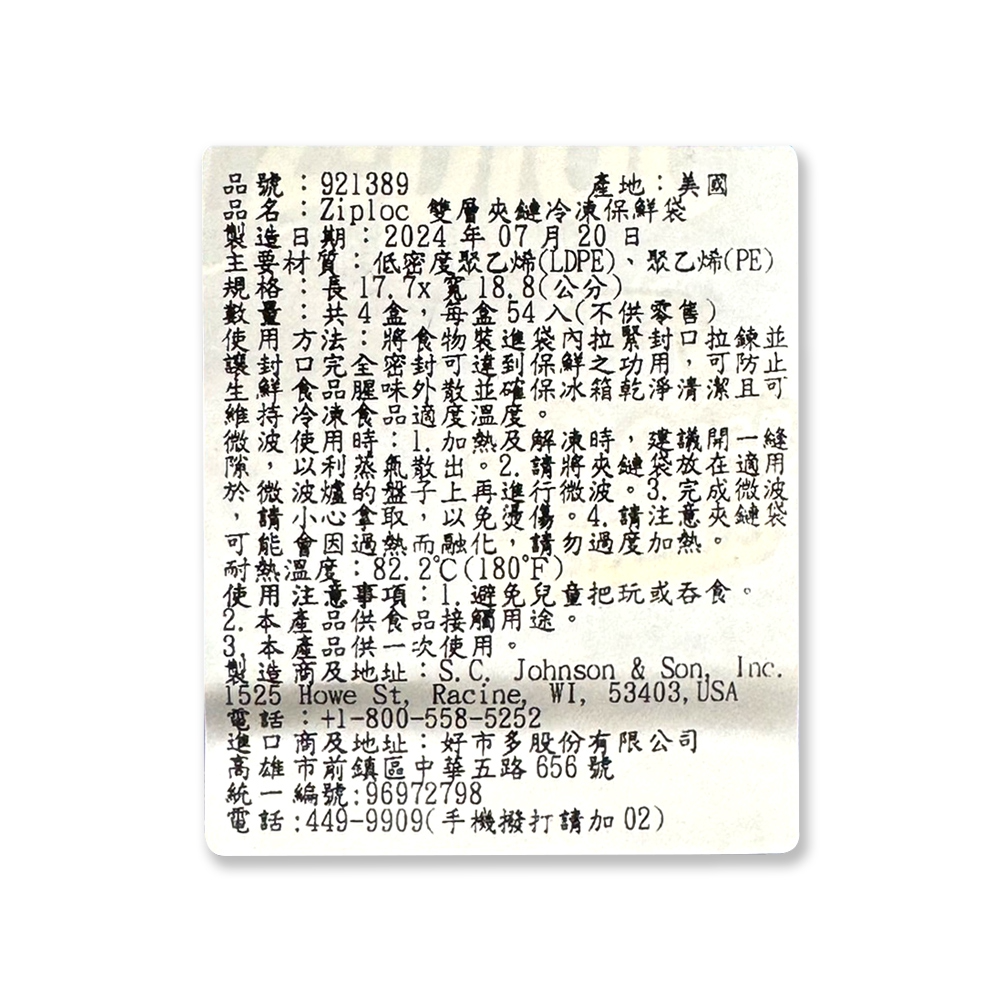 品號：921389 產地：美國
品名：Ziploc 雙層夾鏈冷凍保鮮袋
製造日期：2024 年 07 月 20 日
主要材質：低密度聚乙烯(LDPE)、聚乙烯(PE)
規格：長 17.7x 寬 18.8(公分)
數量：共 4 盒，每盒 54 入(不供零售)
使用方法：將食物裝進袋內拉緊封口拉鍊並
讓封口完全密封可達到保鮮之功用，可防止
生鮮食品腥味外散並確保冰箱乾淨清潔且可
維持冷凍食品適度溫度。
微波使用時：1.加熱及解凍時，建議開一縫
隙，以利蒸氣散出。2.請將夾鏈袋放在適用
於微波爐的盤子上再進行微波。3.完成微波
，請小心拿取，以免燙傷。4.請注意夾鏈袋
可能會因過熱而融化，請勿過度加熱。
耐熱溫度：82.2℃(180℉)
使用注意事項：1.避免兒童把玩或吞食。
2.本產品供食品接觸用途。
3.本產品供一次使用。
製造商及地址：S.C. Johnson & Son, Inc.
1525 Howe St, Racine, WI, 53403,USA
電話：+1-800-558-5252
進口商及地址：好市多股份有限公司
高雄市前鎮區中華五路 656 號
統一編號:96972798
電話:449-9909(手機撥打請加 02)